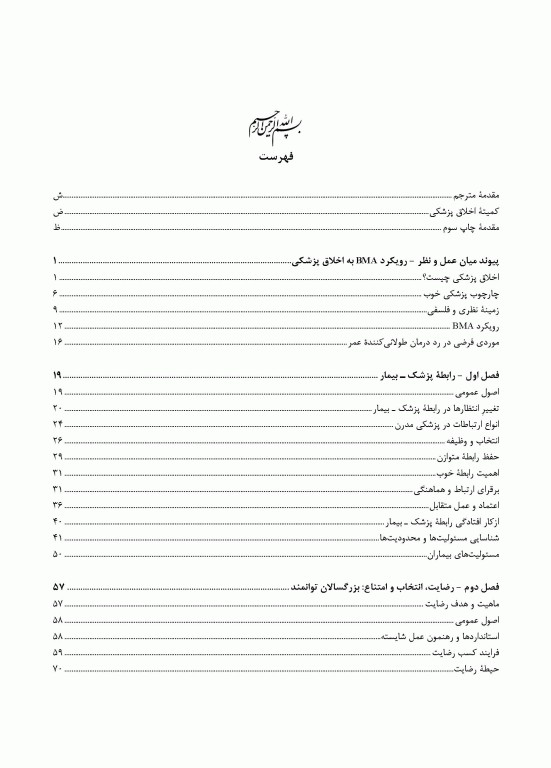 بسم الله الرحمن الرحیم
فهرست
مقدمهٔ مترجم ........ ش
کمیتهٔ اخلاق پزشکی ........ ض
مقدمهٔ چاپ سوم ........ ظ
پیوند میان عمل و نظر - رویکرد BMA به اخلاق پزشکی ........ ۱
اخلاق پزشکی چیست؟ ........ ۱
چارچوب پزشکی خوب ........ ۶
زمینهٔ نظری و فلسفی ........ ۹
رویکرد BMA ........ ۱۲
موردی فرضی در رد درمان طولانی‌کنندهٔ عمر ........ ۱۶
فصل اول - رابطهٔ پزشک ـ بیمار ........ ۱۹
اصول عمومی ........ ۱۹
تغییر انتظارها در رابطهٔ پزشک ـ بیمار ........ ۲۰
انواع ارتباطات در پزشکی مدرن ........ ۲۴
انتخاب و وظیفه ........ ۲۶
حفظ رابطهٔ متوازن ........ ۲۹
اهمیت رابطهٔ خوب ........ ۳۱
برقرای ارتباط و هماهنگی ........ ۳۱
اعتماد و عمل متقابل ........ ۳۶
ازکار افتادگی رابطهٔ پزشک ـ بیمار ........ ۴۰
شناسایی مسئولیت‌ها و محدودیت‌ها ........ ۴۱
مسئولیت‌های بیماران ........ ۵۰
فصل دوم - رضایت، انتخاب و امتناع: بزرگسالان توانمند ........ ۵۷
ماهیت و هدف رضایت ........ ۵۷
اصول عمومی ........ ۵۸
استانداردها و رهنمون عمل شایسته ........ ۵۸
فرایند کسب رضایت ........ ۵۹
حیطهٔ رضایت ........ ۷۰